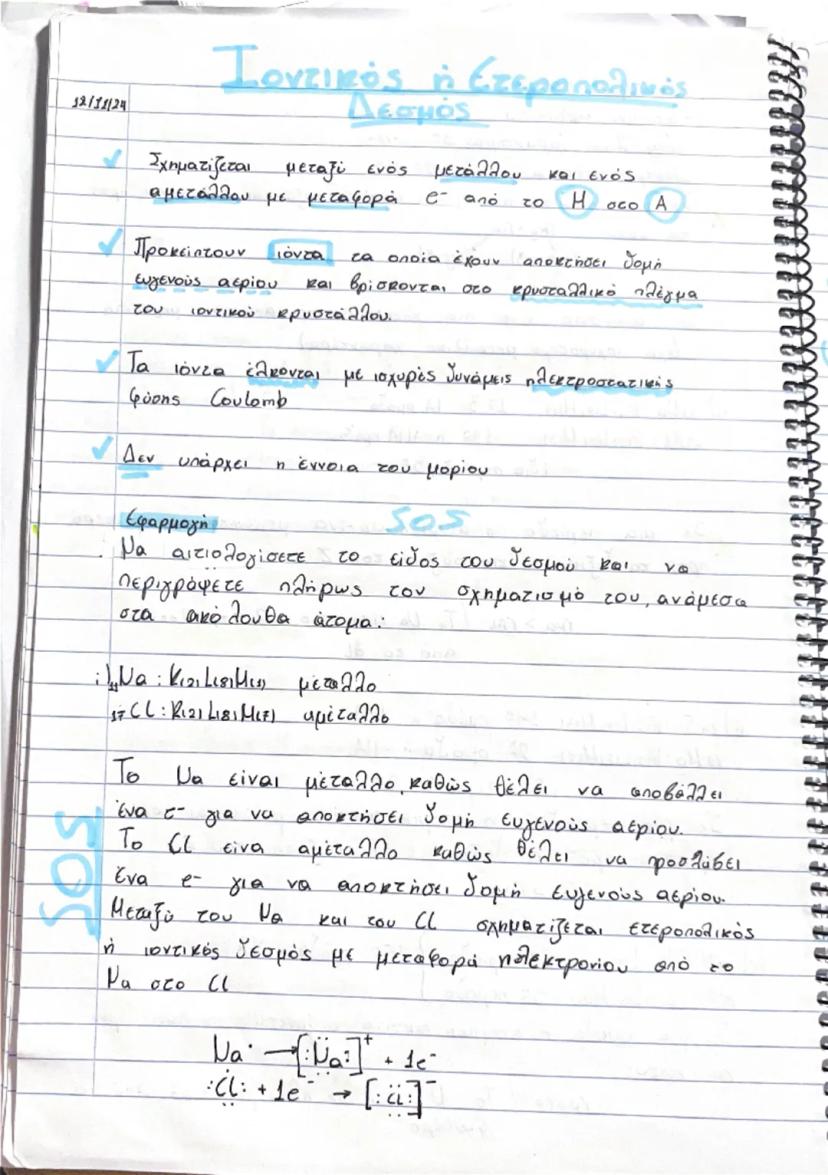 Ιοντικός ή Ετεροπολικός
Δεσμός
12/11/24
Σχηματίζεται μεταξύ ενός μετάλλου και ενός
αμετάλλου με μεταφορά e⁻ από το Μ στο Α
Προκείπτουν ιόντα τα οποία έχουν αποκτήσει δομή
ευγενούς αερίου και βρίσκονται στο κρυσταλλικό πλέγμα
του ιοντικού κρυστάλλου.
Τα ιόντα έλκονται με ισχυρές δυνάμεις ηλεκτροστατικής
φύσης Coulomb
Δεν υπάρχει η έννοια του μορίου
Εφαρμογή SOS
Να αιτιολογίσετε το είδος του δεσμού και να
περιγράψετε πλήρως τον σχηματισμό του, ανάμεσα
στα ακόλουθα άτομα:
i) ₁₁Na: K(2) L(8) M(1) μέταλλο
₁₇Cl: K(2) L(8) M(7) αμέταλλο
SOS
Το Na είναι μέταλλο, καθώς θέλει να αποβάλλει
ένα e⁻ για να αποκτήσει δομή ευγενούς αερίου.
Το Cl είνα αμέταλλο καθώς θέλει να προσλάβει
ένα e⁻ για να αποκτήσει δομή ευγενούς αερίου.
Μεταξύ του Na και του Cl σχηματίζεται ετεροπολικός
ή ιοντικός δεσμός με μεταφορά ηλεκτρονίου από το
Na στο Cl
Na· → [:Na:]⁺ + 1e⁻
:Cl: + 1e⁻ → [:Cl:]⁻